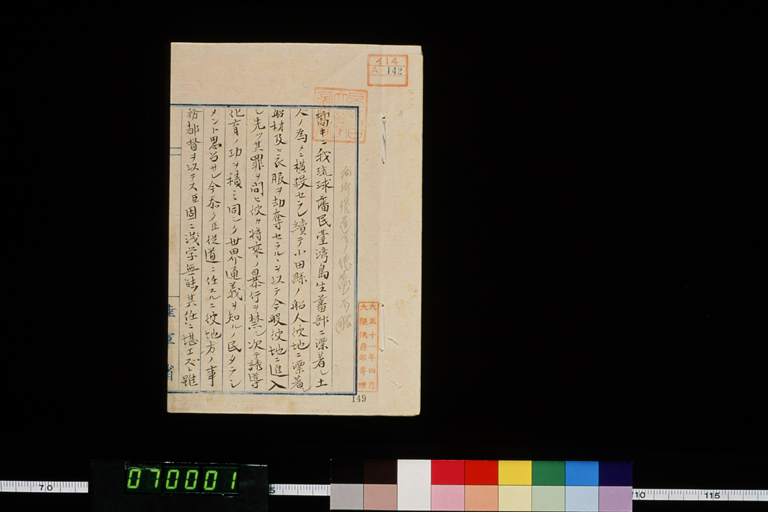 嚮キニ我琉球藩民臺湾島生蕃部ニ漂着シ土
人ノ為メニ横殺セラレ續テ小田縣ノ船人彼地ニ漂着シ
船材及ヒ衣服ヲ劫奪セラルヽヲ以テ今般彼地ニ進入
シ先ツ其罪ヲ問ヒ彼カ将来ノ暴行ヲ禁シ次テ誘導
化育ノ功ヲ積ミ同シク世界通義ヲ知ルノ民タラシ
メント思召サレ今茲ノ臣従道ニ任スルニ彼地方ノ事
務都督ヲ以テス臣固ニ浅学無味其任ニ堪エズト雖
陸軍省
414
A 142
大正十一年四月
大隈侯爵家寄贈
149
070001
70
5
10
115